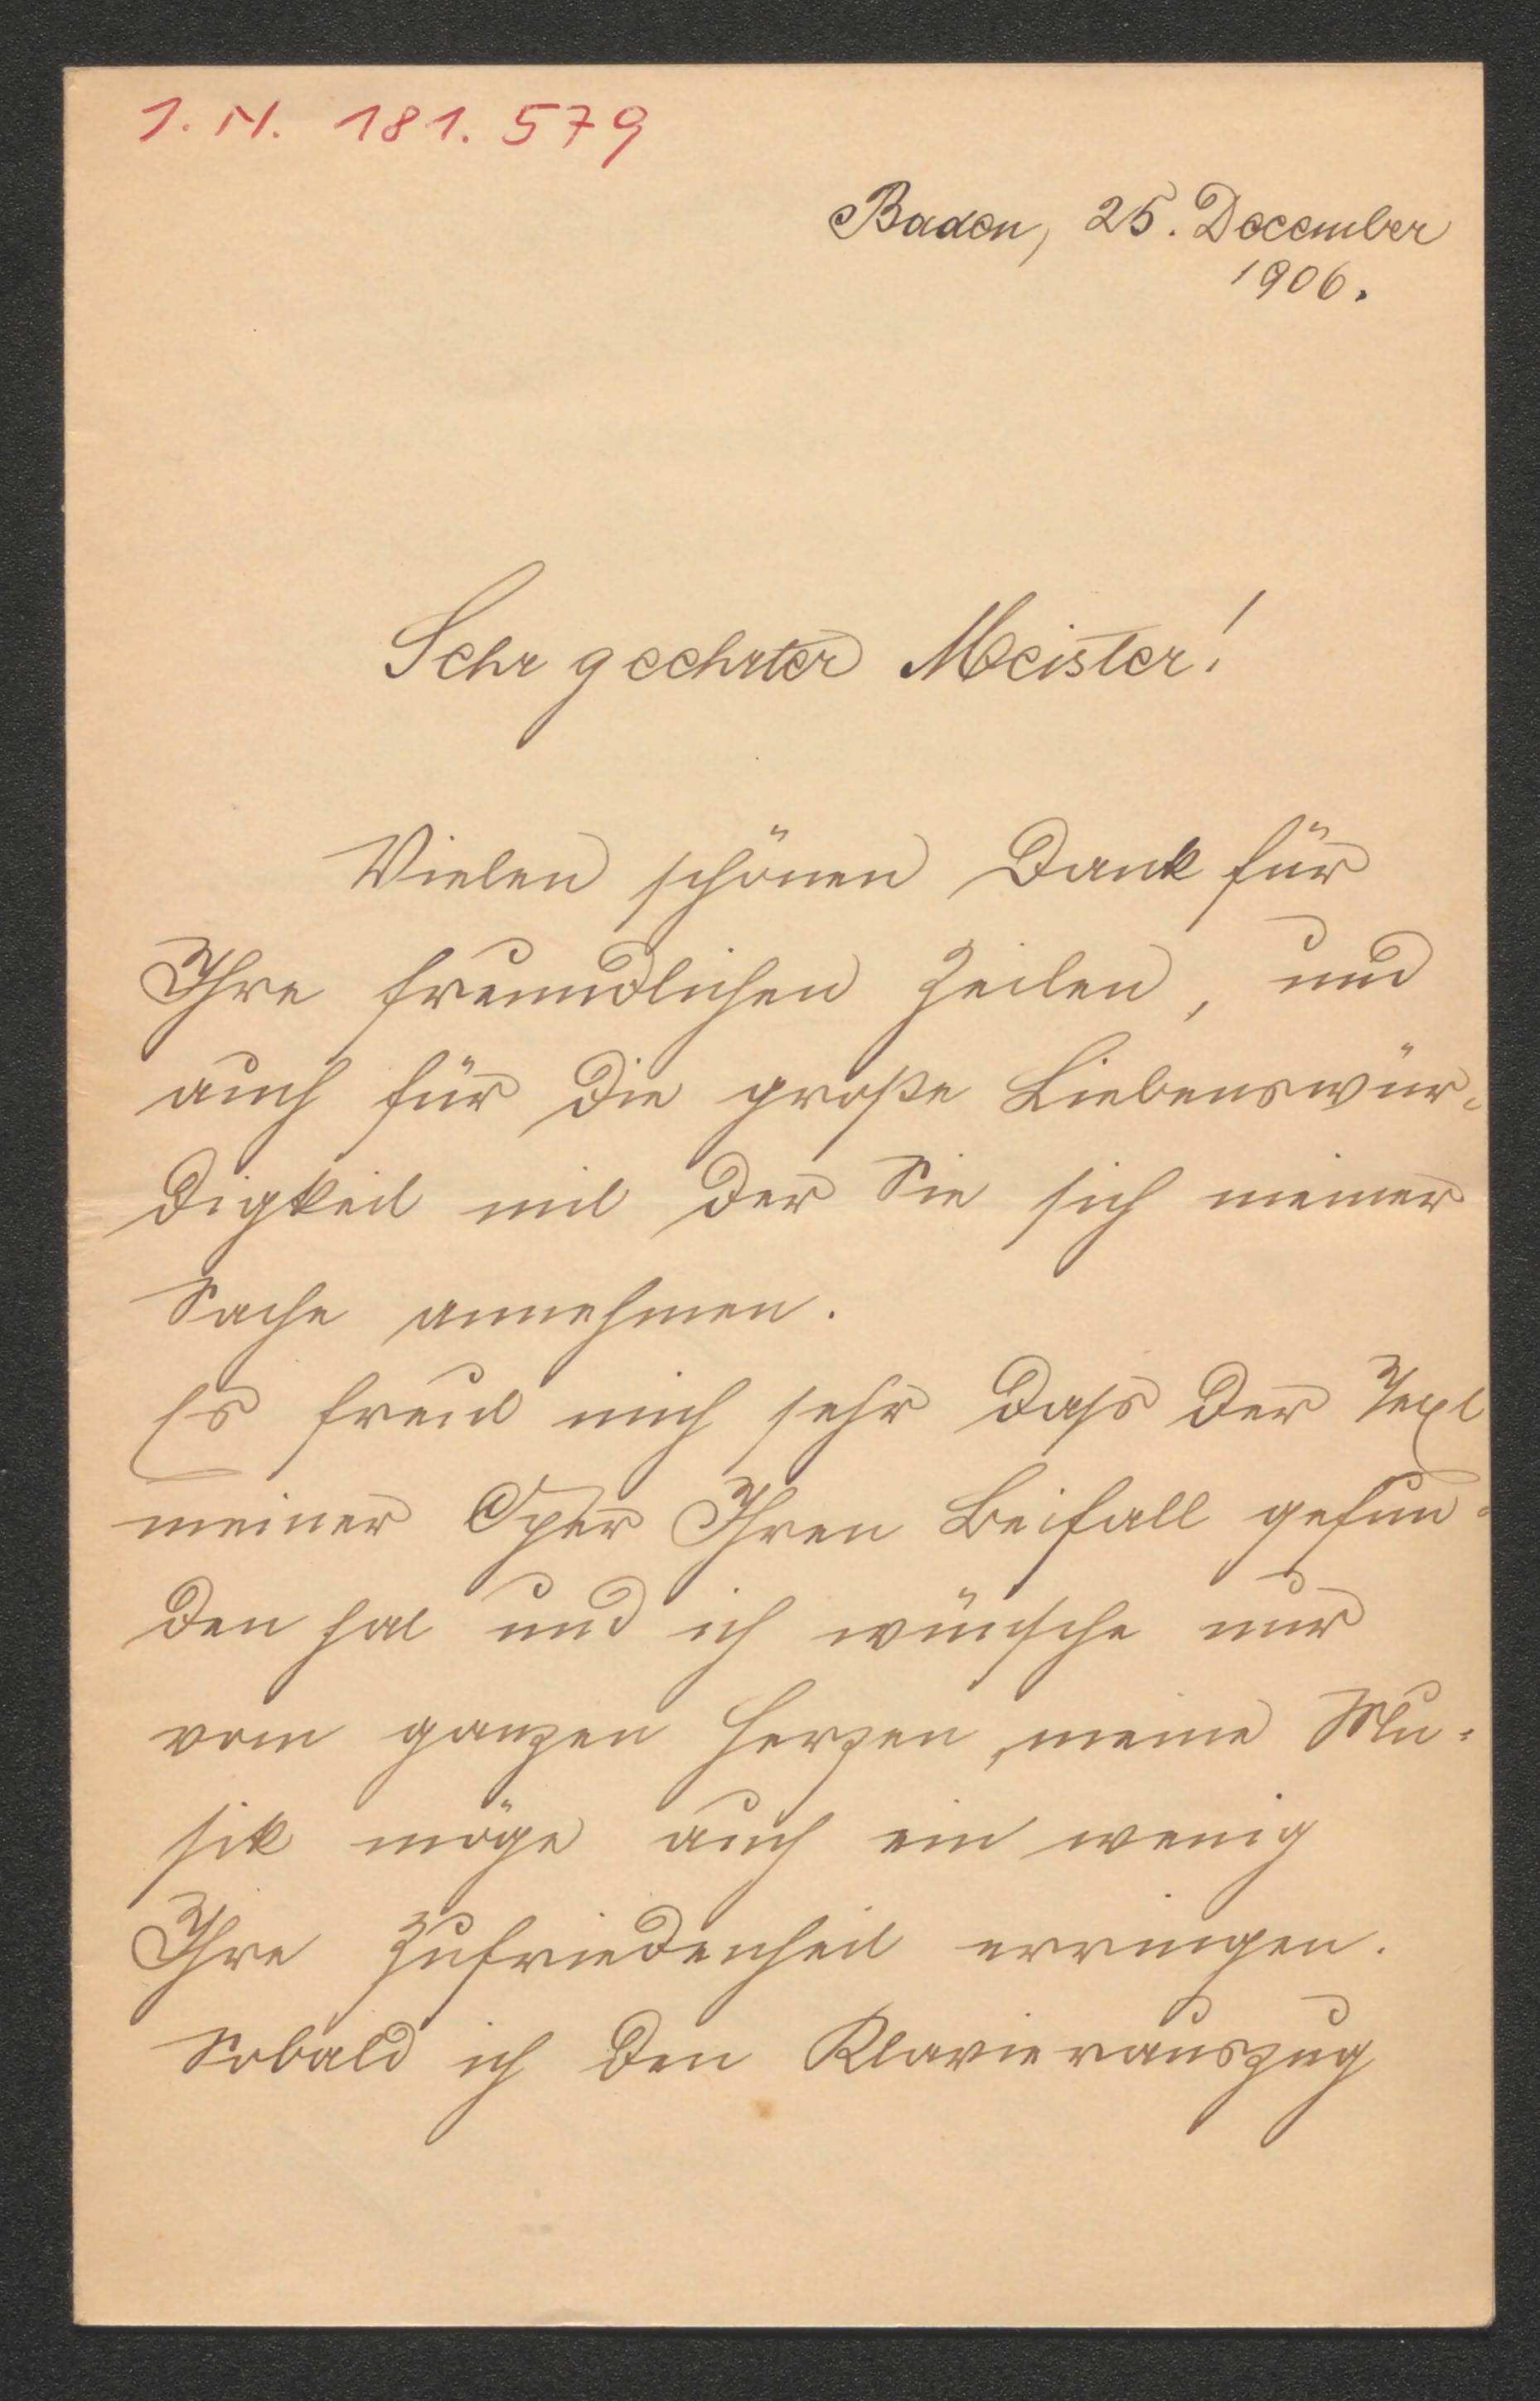 J. N. 181.579
Baden, 25. December
1906.
Sehr geehrter Meister!
Vielen schönen Dank für
Ihre freundlichen Zeilen, und
auch für die große Liebenswür-
digkeit mit der Sie sich meiner
Sache annehmen.
Es freut mich sehr dass der Text
meiner Oper Ihren Beifall gefun-
den hat und ich wünsche nur
vom ganzen Herzen, meine Mu-
sik möge auch ein wenig
Ihre Zufriedenheit erringen.
Sobald ich den Klavierauszug